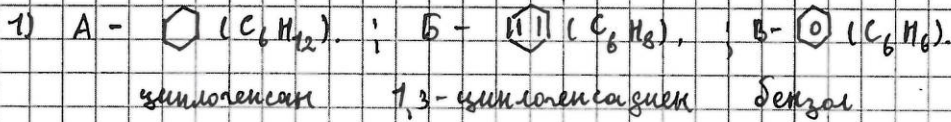 1) А - (C₆H₁₂). ; Б - (C₆H₈). ; В - (C₆H₆).
циклогексан 1,3-циклогексадиен бензол